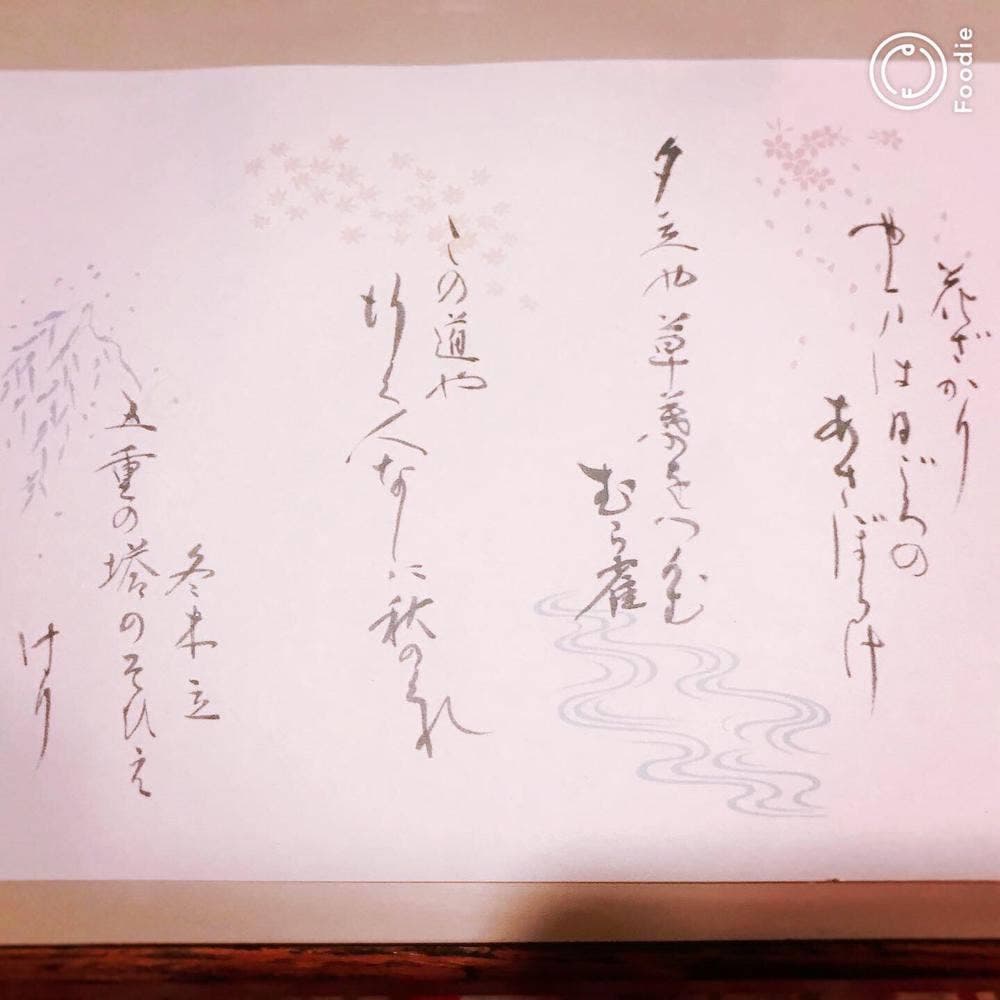 花ざかり
山は日ごろの
あさぼらけ
夕立や草葉をつかむ
むら雀
この道や
行く人なしに秋のくれ
冬木立
五重の塔のそびえ
けり
Foodie